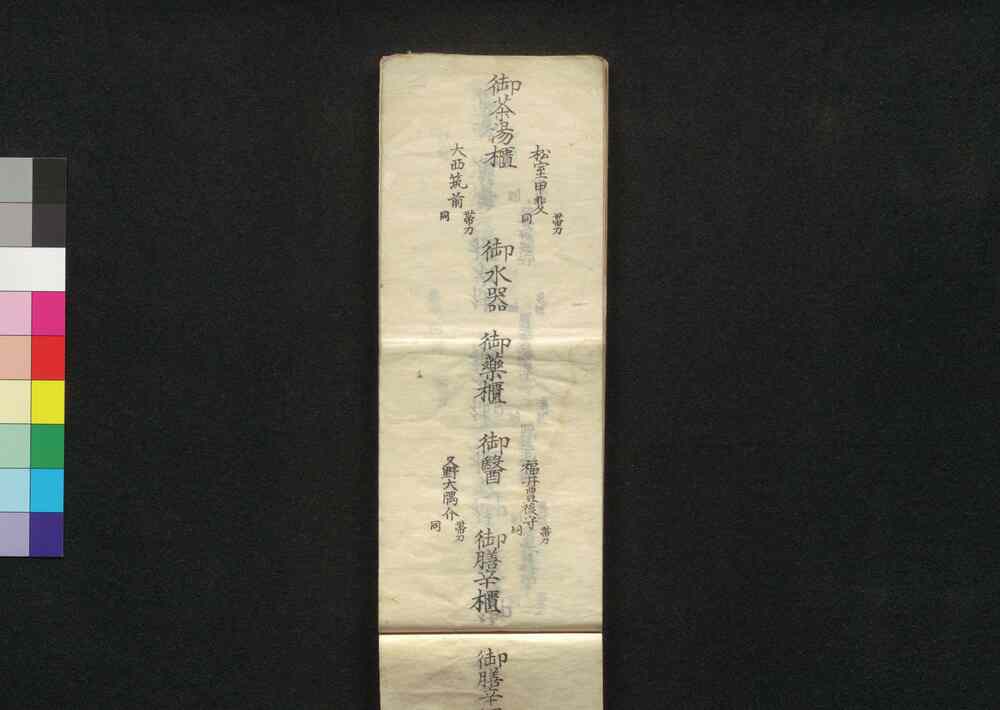 御茶湯櫃
松室甲斐
帯刀
同
大西筑前
帯刀
同
御水器
御藥櫃
御醫
福井豊後守
帯刀
同
大隅介
帯刀
同
御膳辛櫃
御膳辛